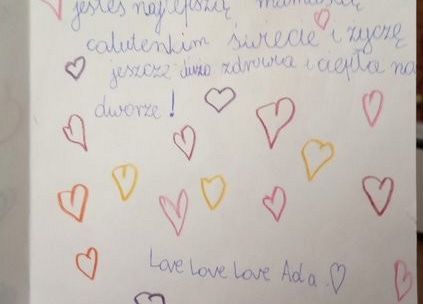 jesteś najlepszą mamusią
calutenkim świecie i życzę
jeszcze dużo zdrowia i ciepła na
dworze!
Love Love Love Ada